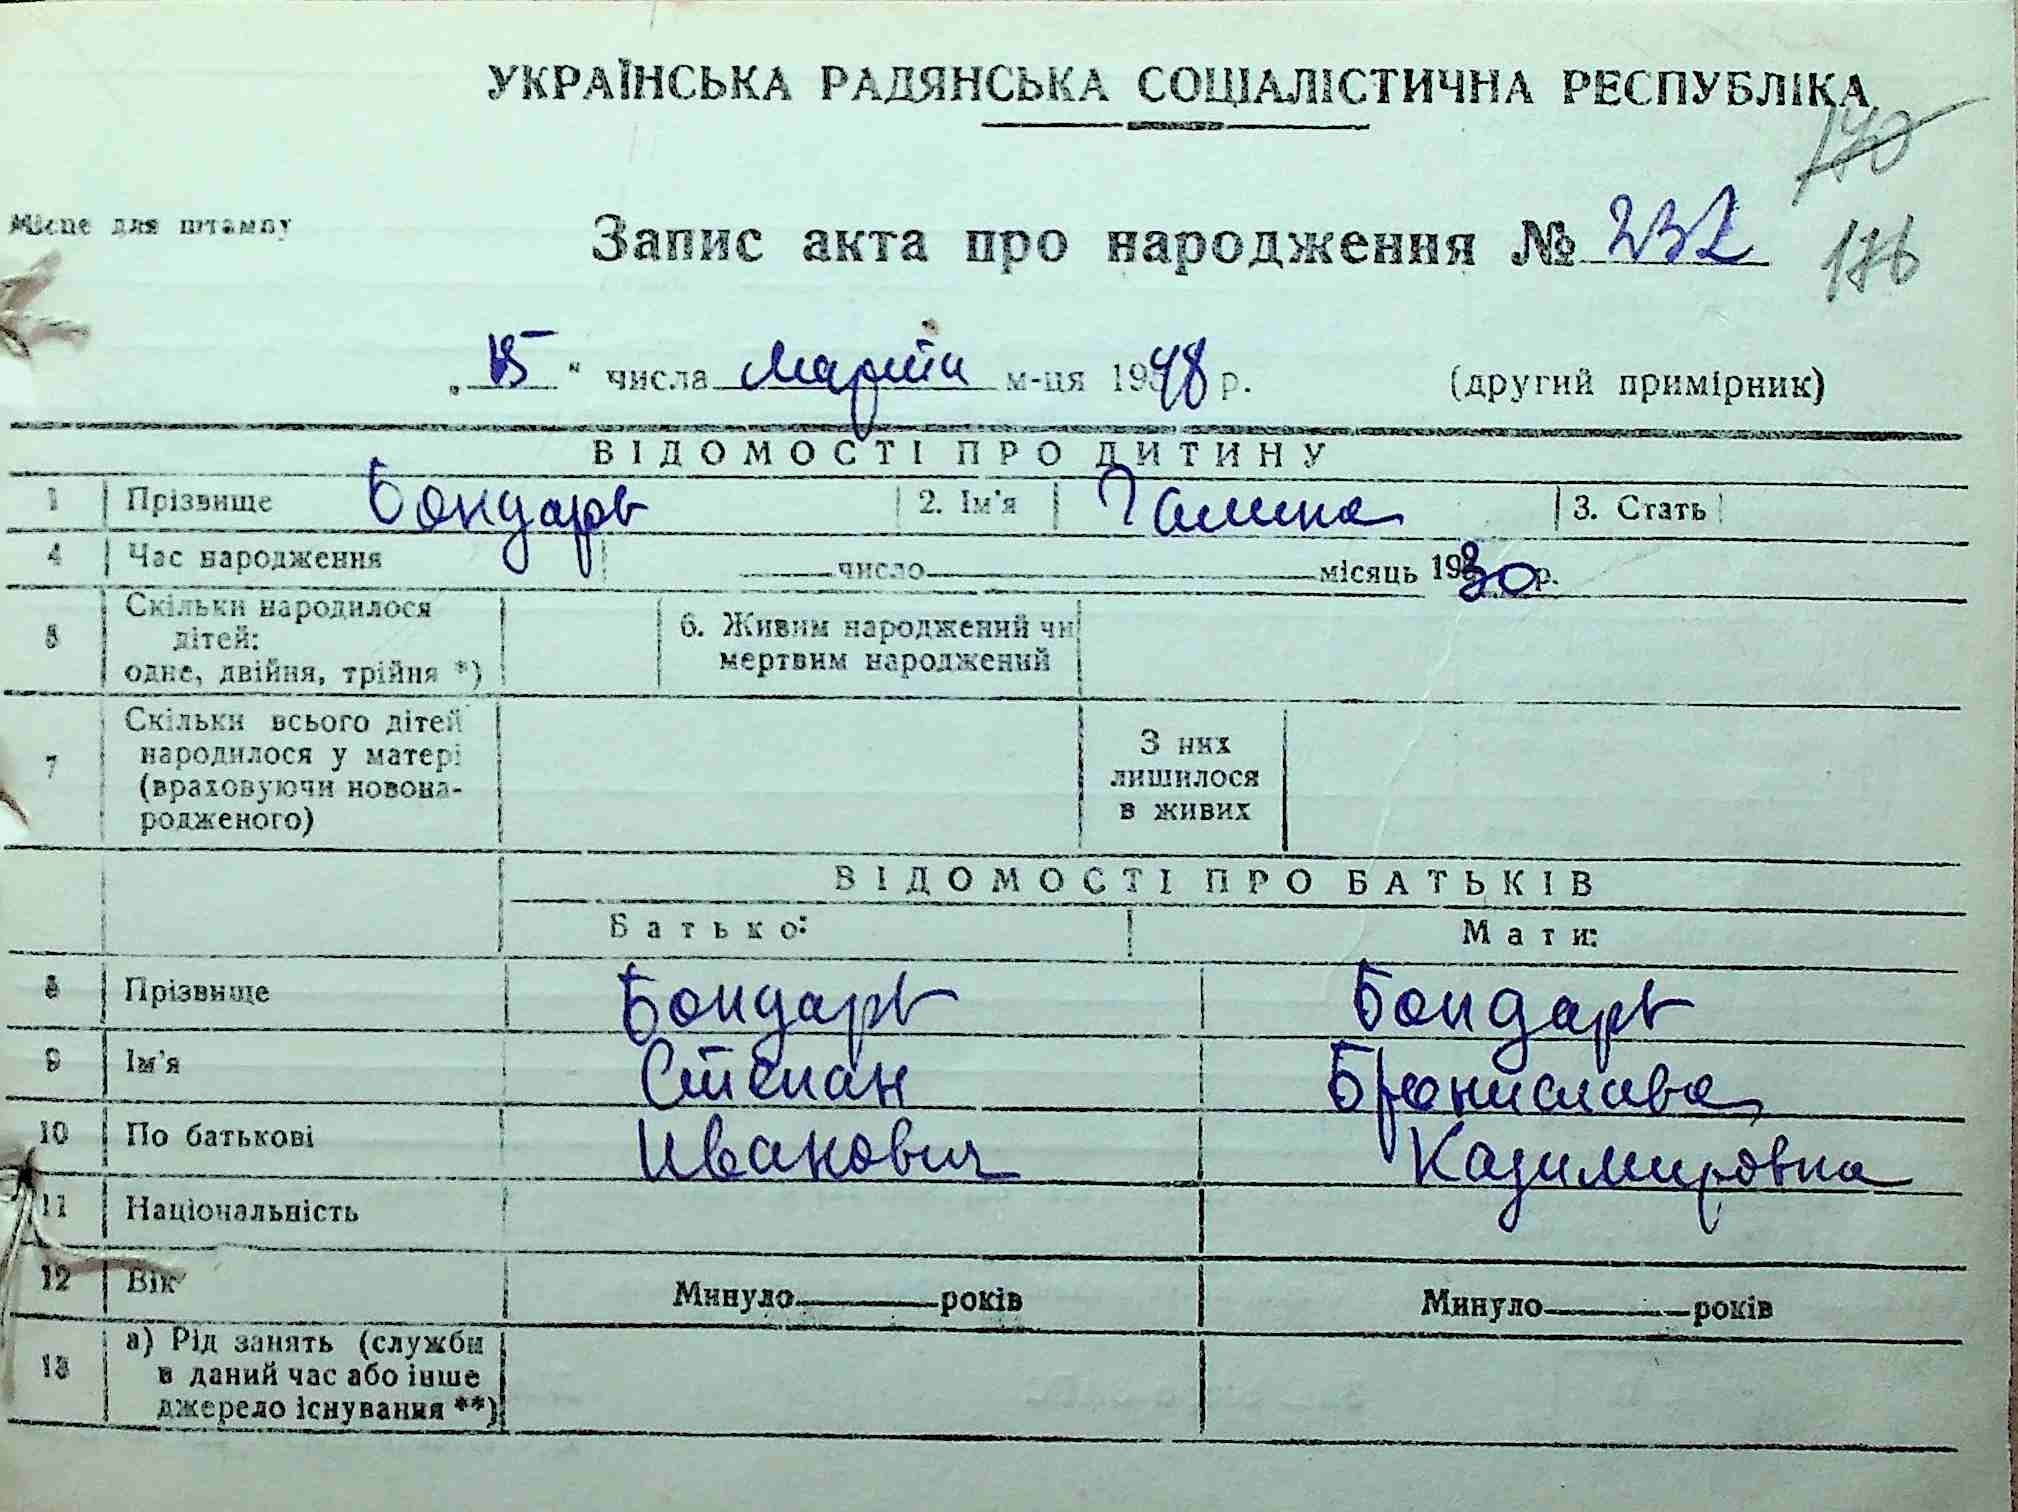 УКРАЇНСЬКА РАДЯНСЬКА СОЦІАЛІСТИЧНА РЕСПУБЛІКА
140
Місце для штампу
Запис акта про народження № 232
176
„15“ числа Марта м-ця 1948 р. (другий примірник)
ВІДОМОСТІ ПРО ДИТИНУ
1 Прізвище Бондарь 2. Ім'я Галина 3. Стать
4 Час народження число місяць 1930 р.
5 Скільки народилося дітей: одне, двійня, трійня *) 6. Живим народжений чи мертвим народжений
7 Скільки всього дітей народилося у матері (враховуючи новонародженого) З них лишилося в живих
ВІДОМОСТІ ПРО БАТЬКІВ
Батько: Мати:
8 Прізвище Бондарь Бондарь
9 Ім'я Степан Бронислава
10 По батькові Иванович Казимировна
11 Національність
12 Вік Минуло років Минуло років
13 а) Рід занять (служби в даний час або інше джерело існування **)